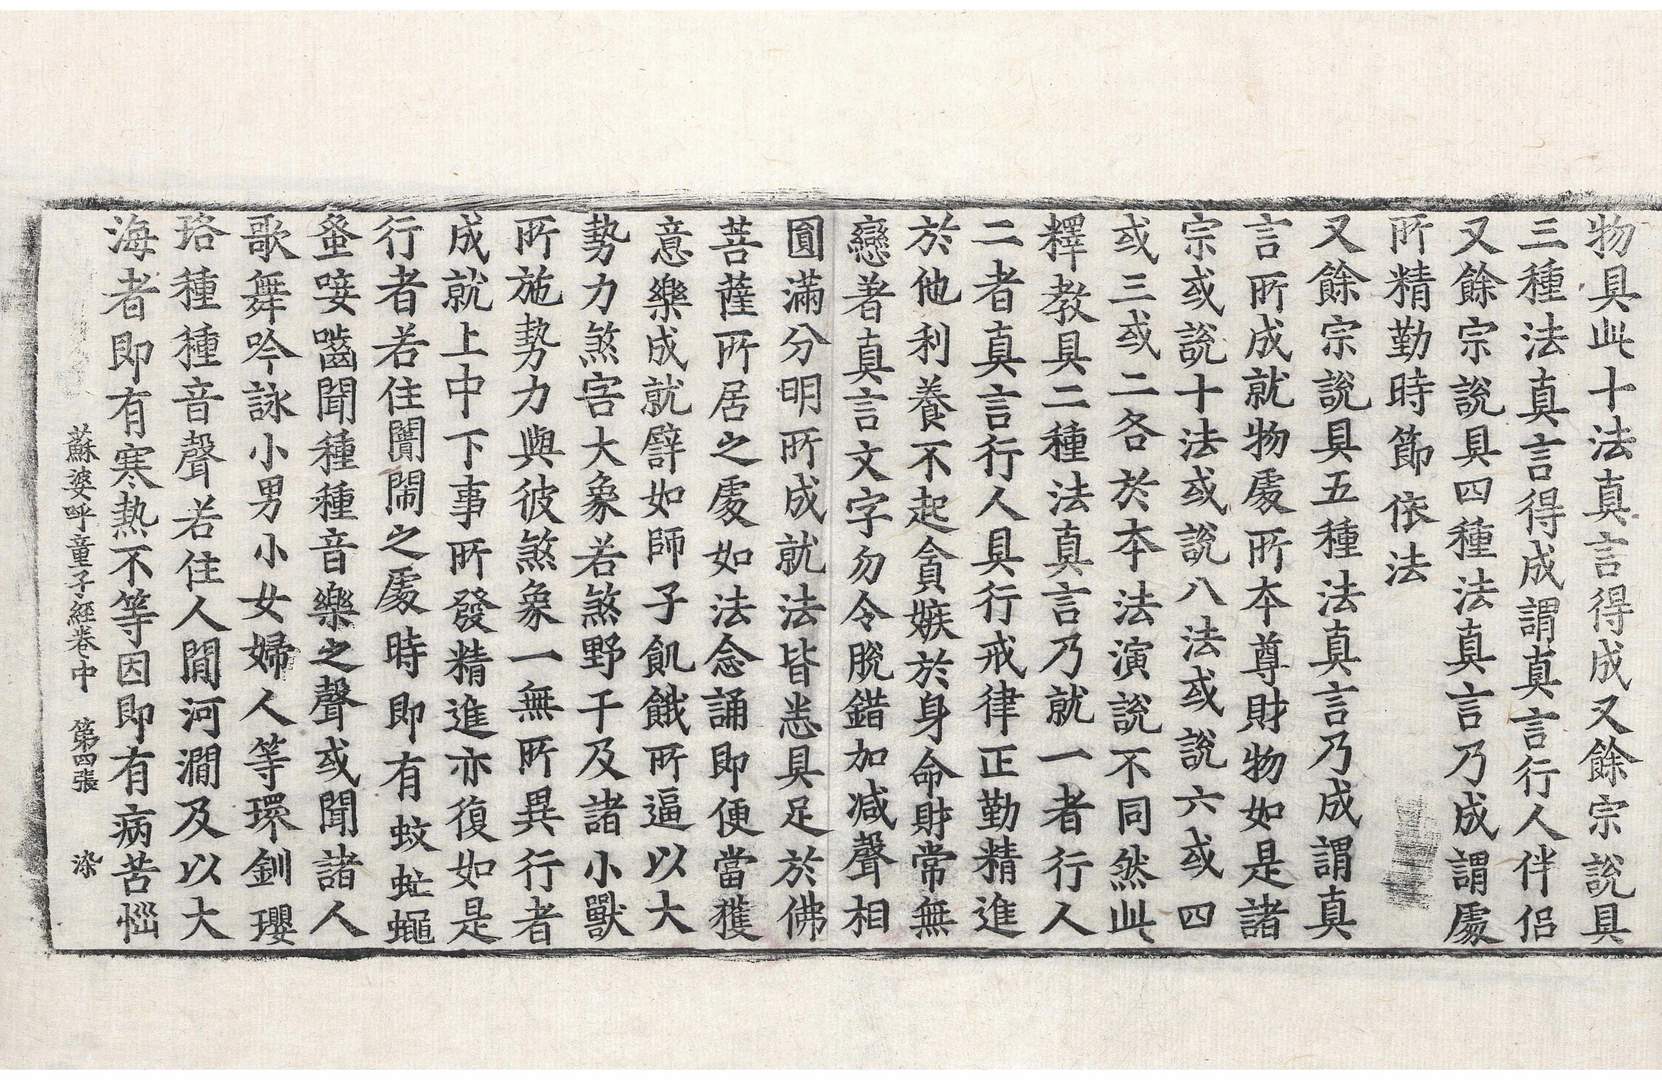 物具此十法真言得成又餘宗說具
三種法真言得成謂真言行人伴侶
又餘宗說具四種法真言乃成謂處
所精勤時節依法
又餘宗說具五種法真言乃成謂真
言所成就物處所本尊財物如是諸
宗或說十法或說八法或說六或四
或三或二各於本法演說不同然此
釋教具二種法真言乃就一者行人
二者真言行人具行戒律正勤精進
於他利養不起貪嫉於身命財常無
戀著真言文字勿令脫錯加減聲相
圓滿分明所成就法皆悉具足於佛
菩薩所居之處如法念誦即便當獲
意樂成就譬如師子飢餓所逼以大
勢力煞害大象若煞野干及諸小獸
所施勢力與彼煞象一無所異行者
成就上中下事所發精進亦復如是
行者若住闠閙之處時即有蚊虻蠅
蚤唼嚙聞種種音樂之聲或聞諸人
歌舞吟詠小男小女婦人等環釧瓔
珞種種音聲若住人間河澗及以大
海者即有寒熱不等因即有病苦惱
蘇婆呼童子經卷中 第四張 染